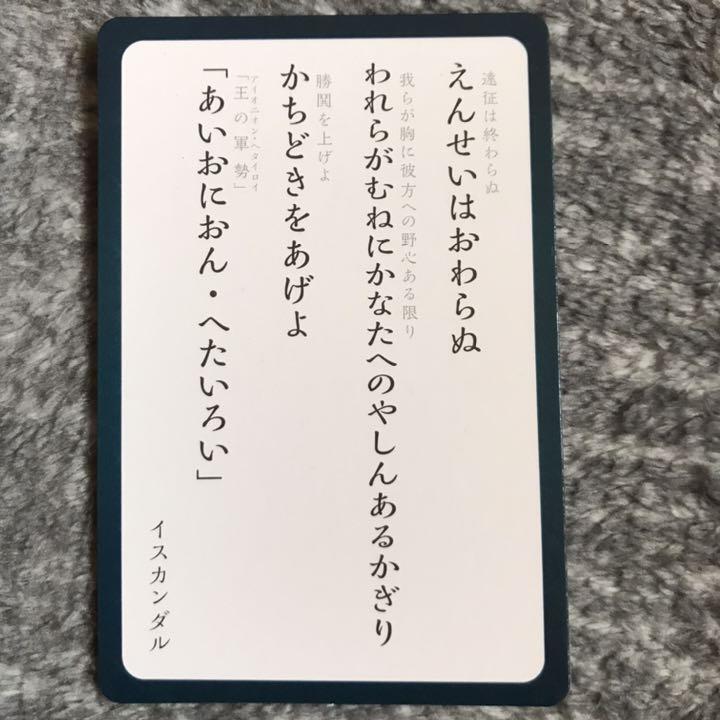 遠征は終わらぬ
えんせいはおわらぬ
我らが胸に彼方への野心ある限り
われらがむねにかなたへのやしんあるかぎり
勝鬨を上げよ
かちどきをあげよ
アイオニオン・ヘタイロイ
「王の軍勢」
「あいおにおん・へたいろい」
イスカンダル